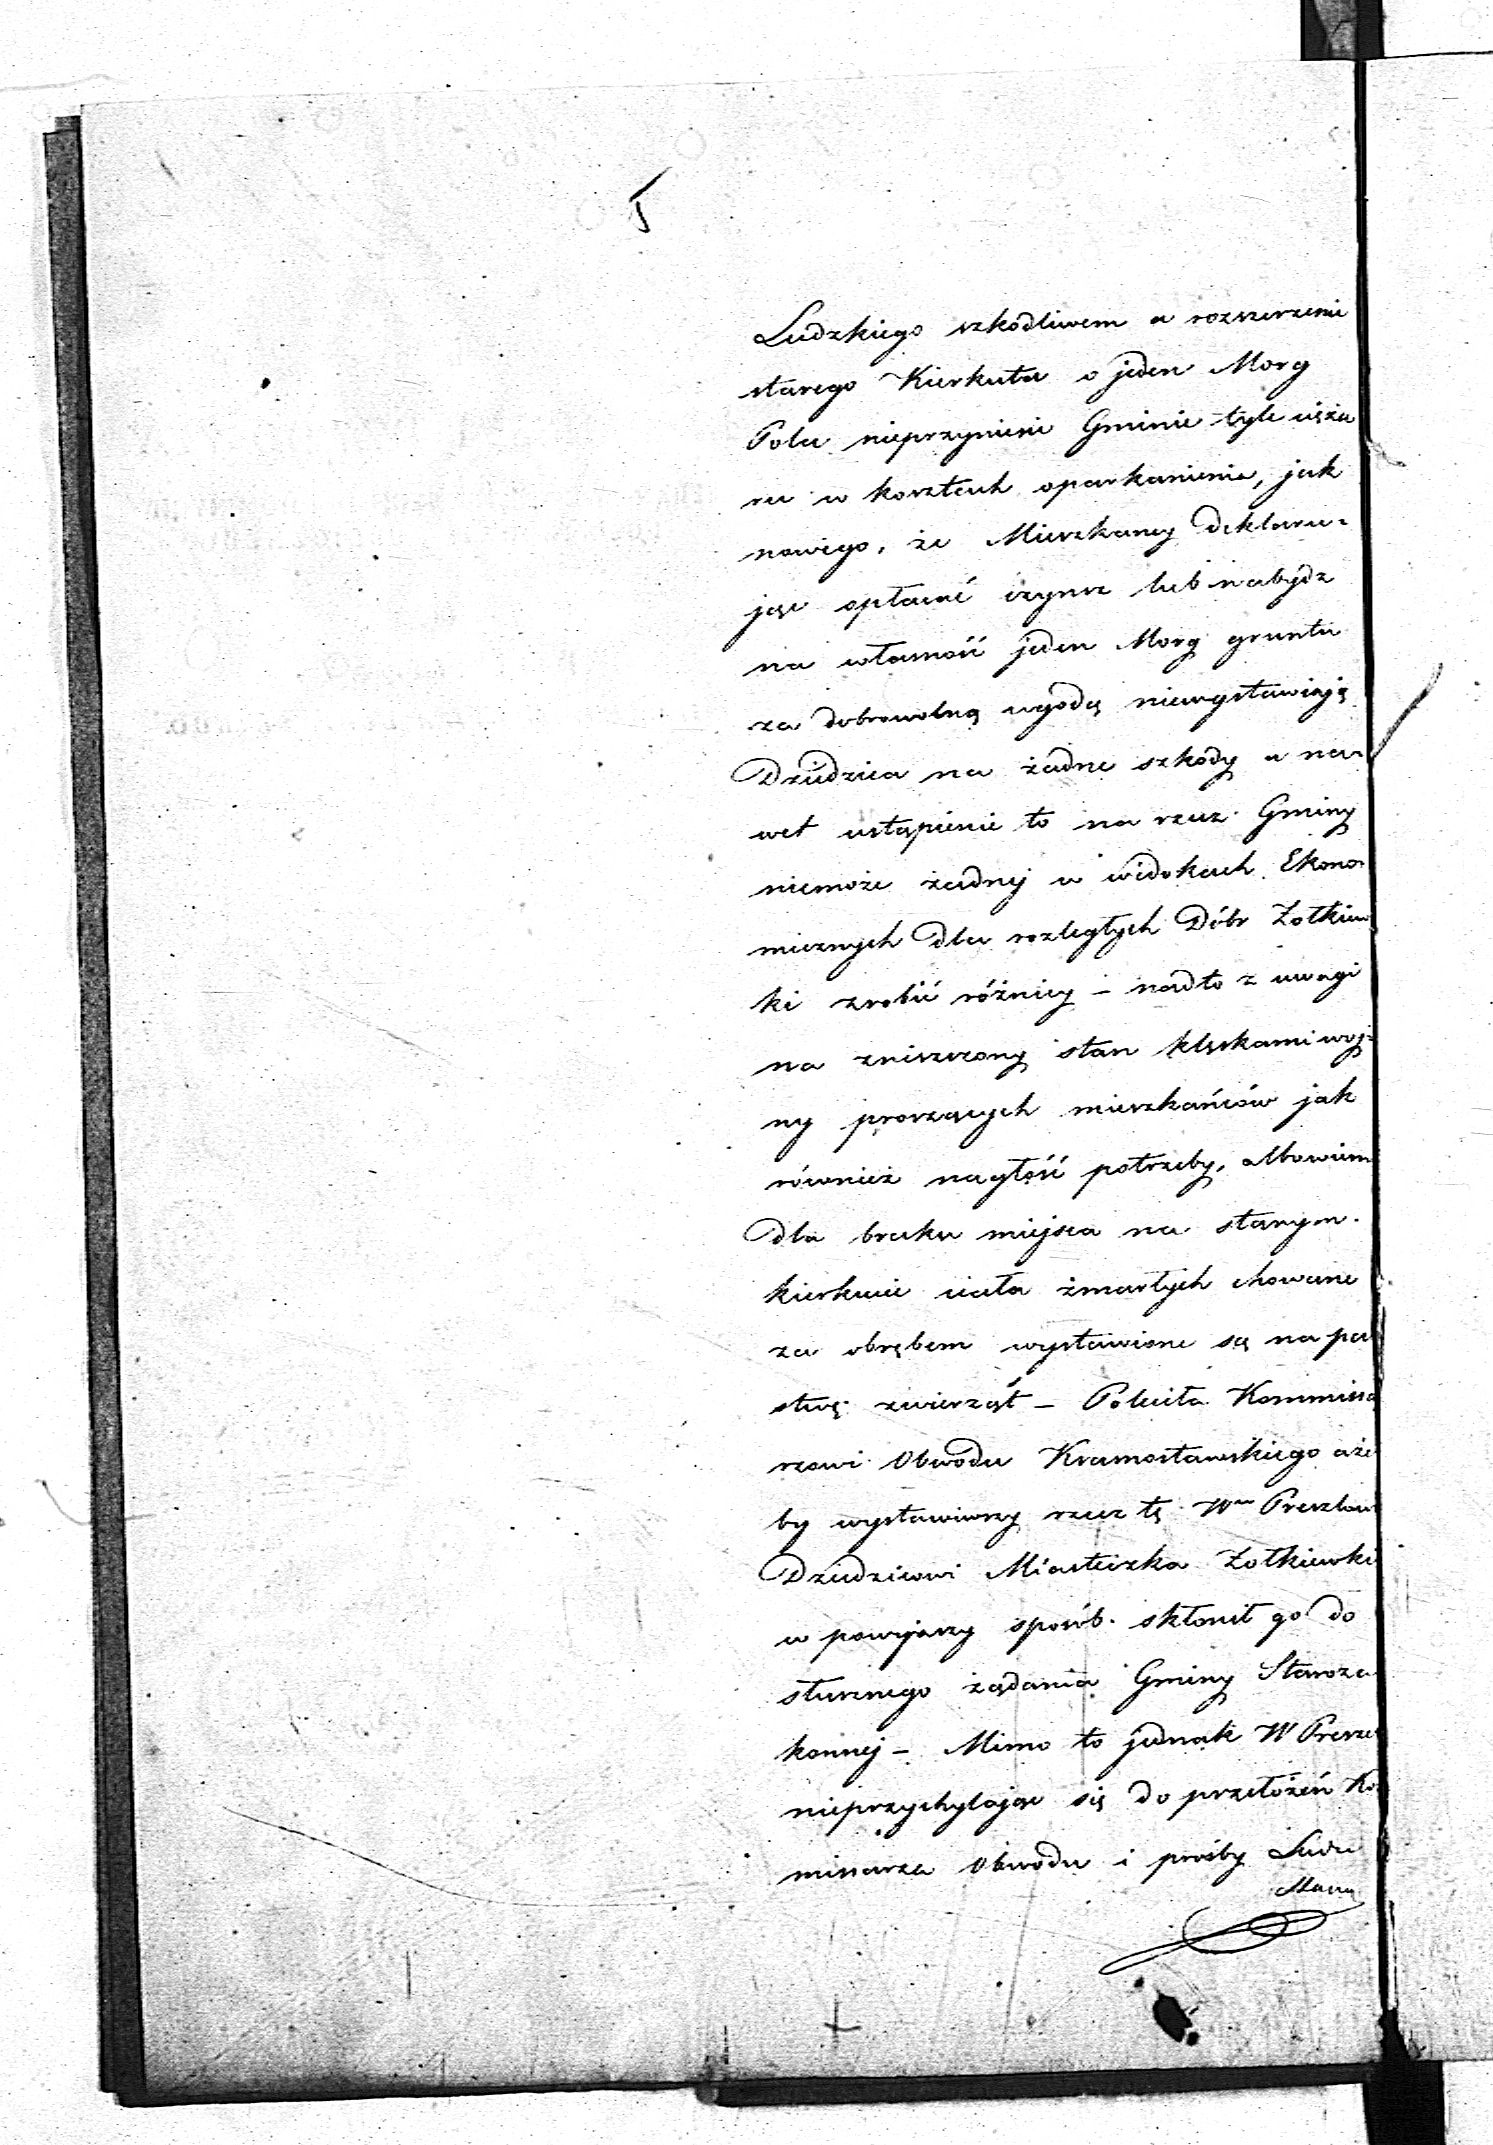 Ludzkiego szkodliwem a rozszerzenie
starego Kierkuta o jeden Morg
Pola nieprzyniesie Gminie tyle cięża
ru w kosztach oparkanienia, jak
nowego, że Mieszkancy deklaru=
jąc opłacać czynsz lub nabydz
na własność jeden Morg gruntu
za dobrowolną ugodą niewystawiają
Dziedzica na żadne szkody a na=
wet ustąpienie to na rzecz Gminy
niemoże żadnej w widokach Ekono=
micznych dla rozległych Dóbr Zołkiew
ki zrobić różnicy – nadto z uwagi
na zniszczony stan klęskami woj=
ny proszących mieszkańców jak
również nagłość potrzeby, albowiem
dla braku miejsca na starym
kierkucie ciała zmarłych chowane
za obrębem wystawione są na pa
stwę zwierząt – Poleciła Kommissa
rzowi Obwodu Krasnostawskiego aże
by wystawiwszy rzecz tę Wmu Preszlowi
Dziedzicowi Miasteczka Zołkiewki
w powyższy sposób skłonił go do
słusznego żądania Gminy Staroza
konnej – Mimo to jednak W Presze
nieprzychylając się do przełożeń Ko
missarza Obwodu i prośby Ludu